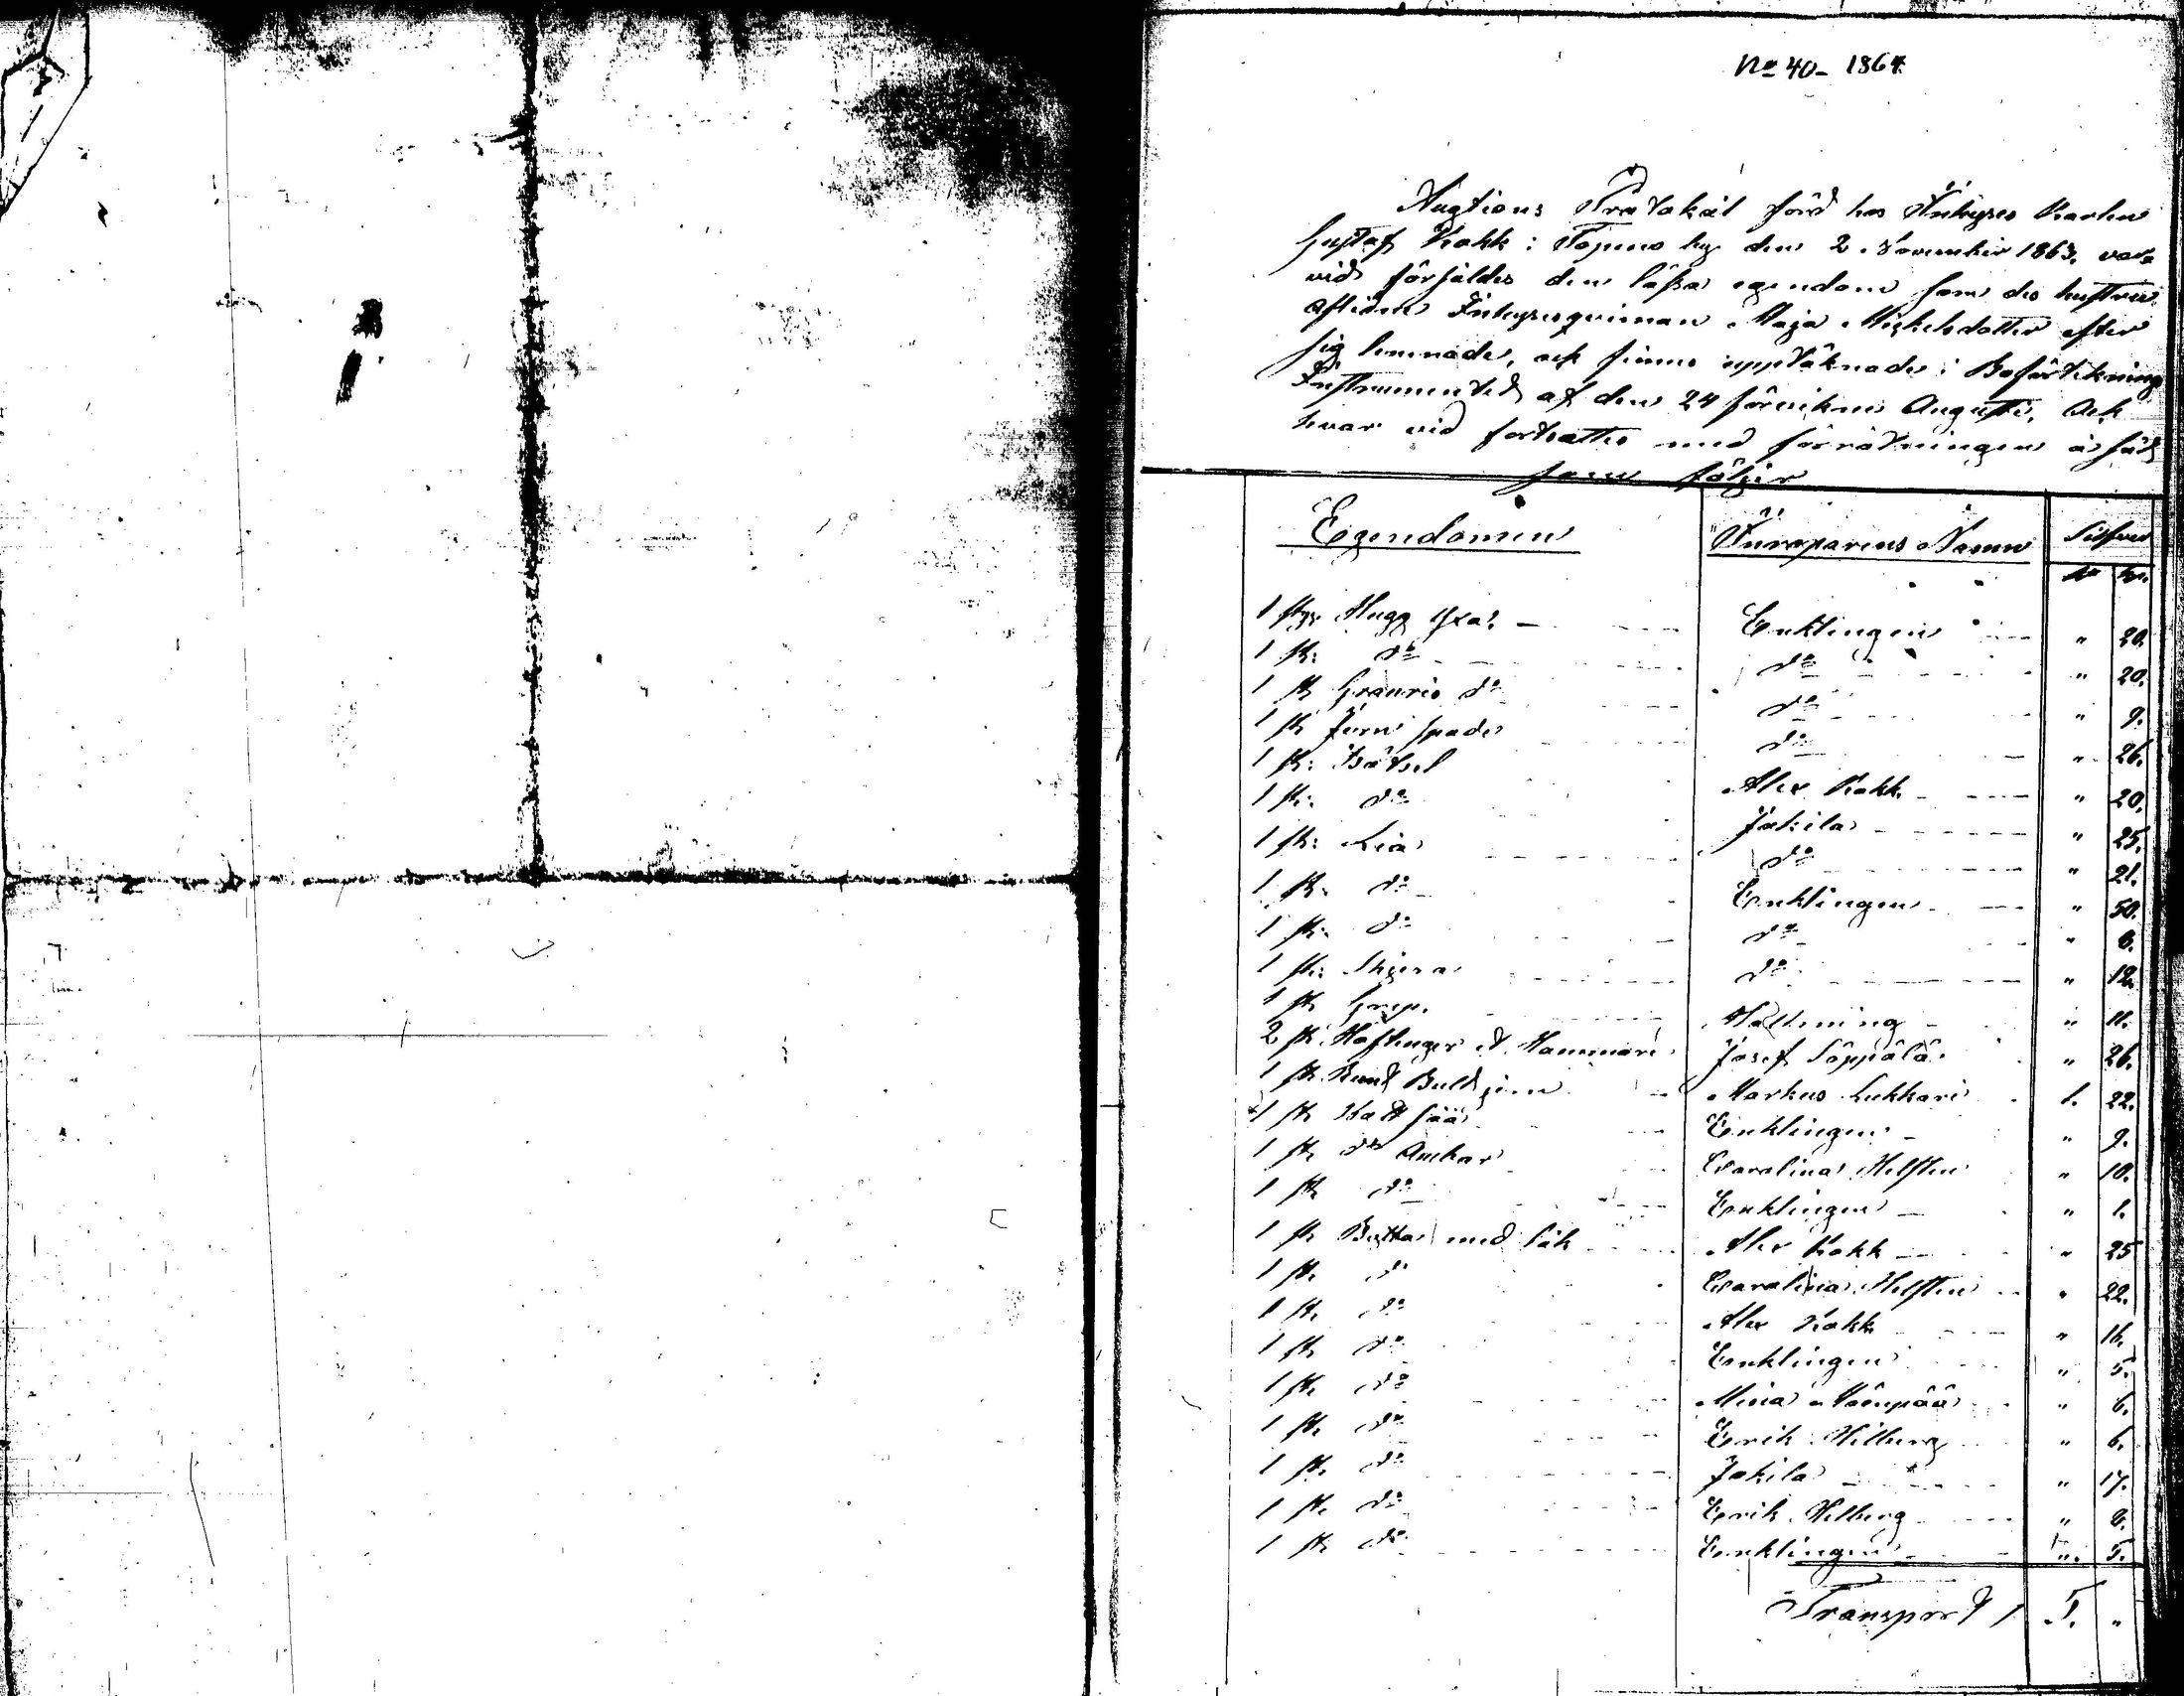 No 40 - 1864
Augtions Protokål förd hos Inhyses Karlen
Gustaf Kokk i Topeno by den 2 November 1863, var
vid försåldes den lösa egendom som des hustru
afledne Inhysesqvinnan Maja Mickelsdotter efter
sig lemnade, och finnes upptäknade i Boförtekning
Instrumented af den 24 förvikne Augusti, Och
hvar vid fortsattes med förrätningen å sätt
som följer
Egendomen Inroparens Namn Silfver
Ro Kop.
1 styc Hugg Yxa Enklingen " 20.
1 st: do do " 20.
1 st do do " 9.
1 st Jern spade do " 26.
1 st: Betsel Alex Kokk " 20.
1 st: do Jakila " 25.
1 st: Lia do " 21.
1 st. do Enklingen " 50.
1 st: do do " 6.
1 st: Skjera do " 12.
1 st Grep. " 11.
2 st Hoftenger et Hammare Josef Seppälä " 26.
1 st Markus Lukkari 1. 22.
1 st Enklingen " 9.
1 st do Ankar Carolina Helsten " 10.
1 st do Enklingen " 1.
1 st Bytta med låk Alex Kokk " 25
1 st. do Carolina Helsten " 22.
1 st. do Alex Kokk " 16.
1 st do Enklingen " 5.
1 st. do Mina " 6.
1 st. do Erik Hilberg " 6.
1 st. do Jakila " 17.
1 st. do Erik Hilberg " 8.
1 st do Enklingen " 5.
Transport 5. "